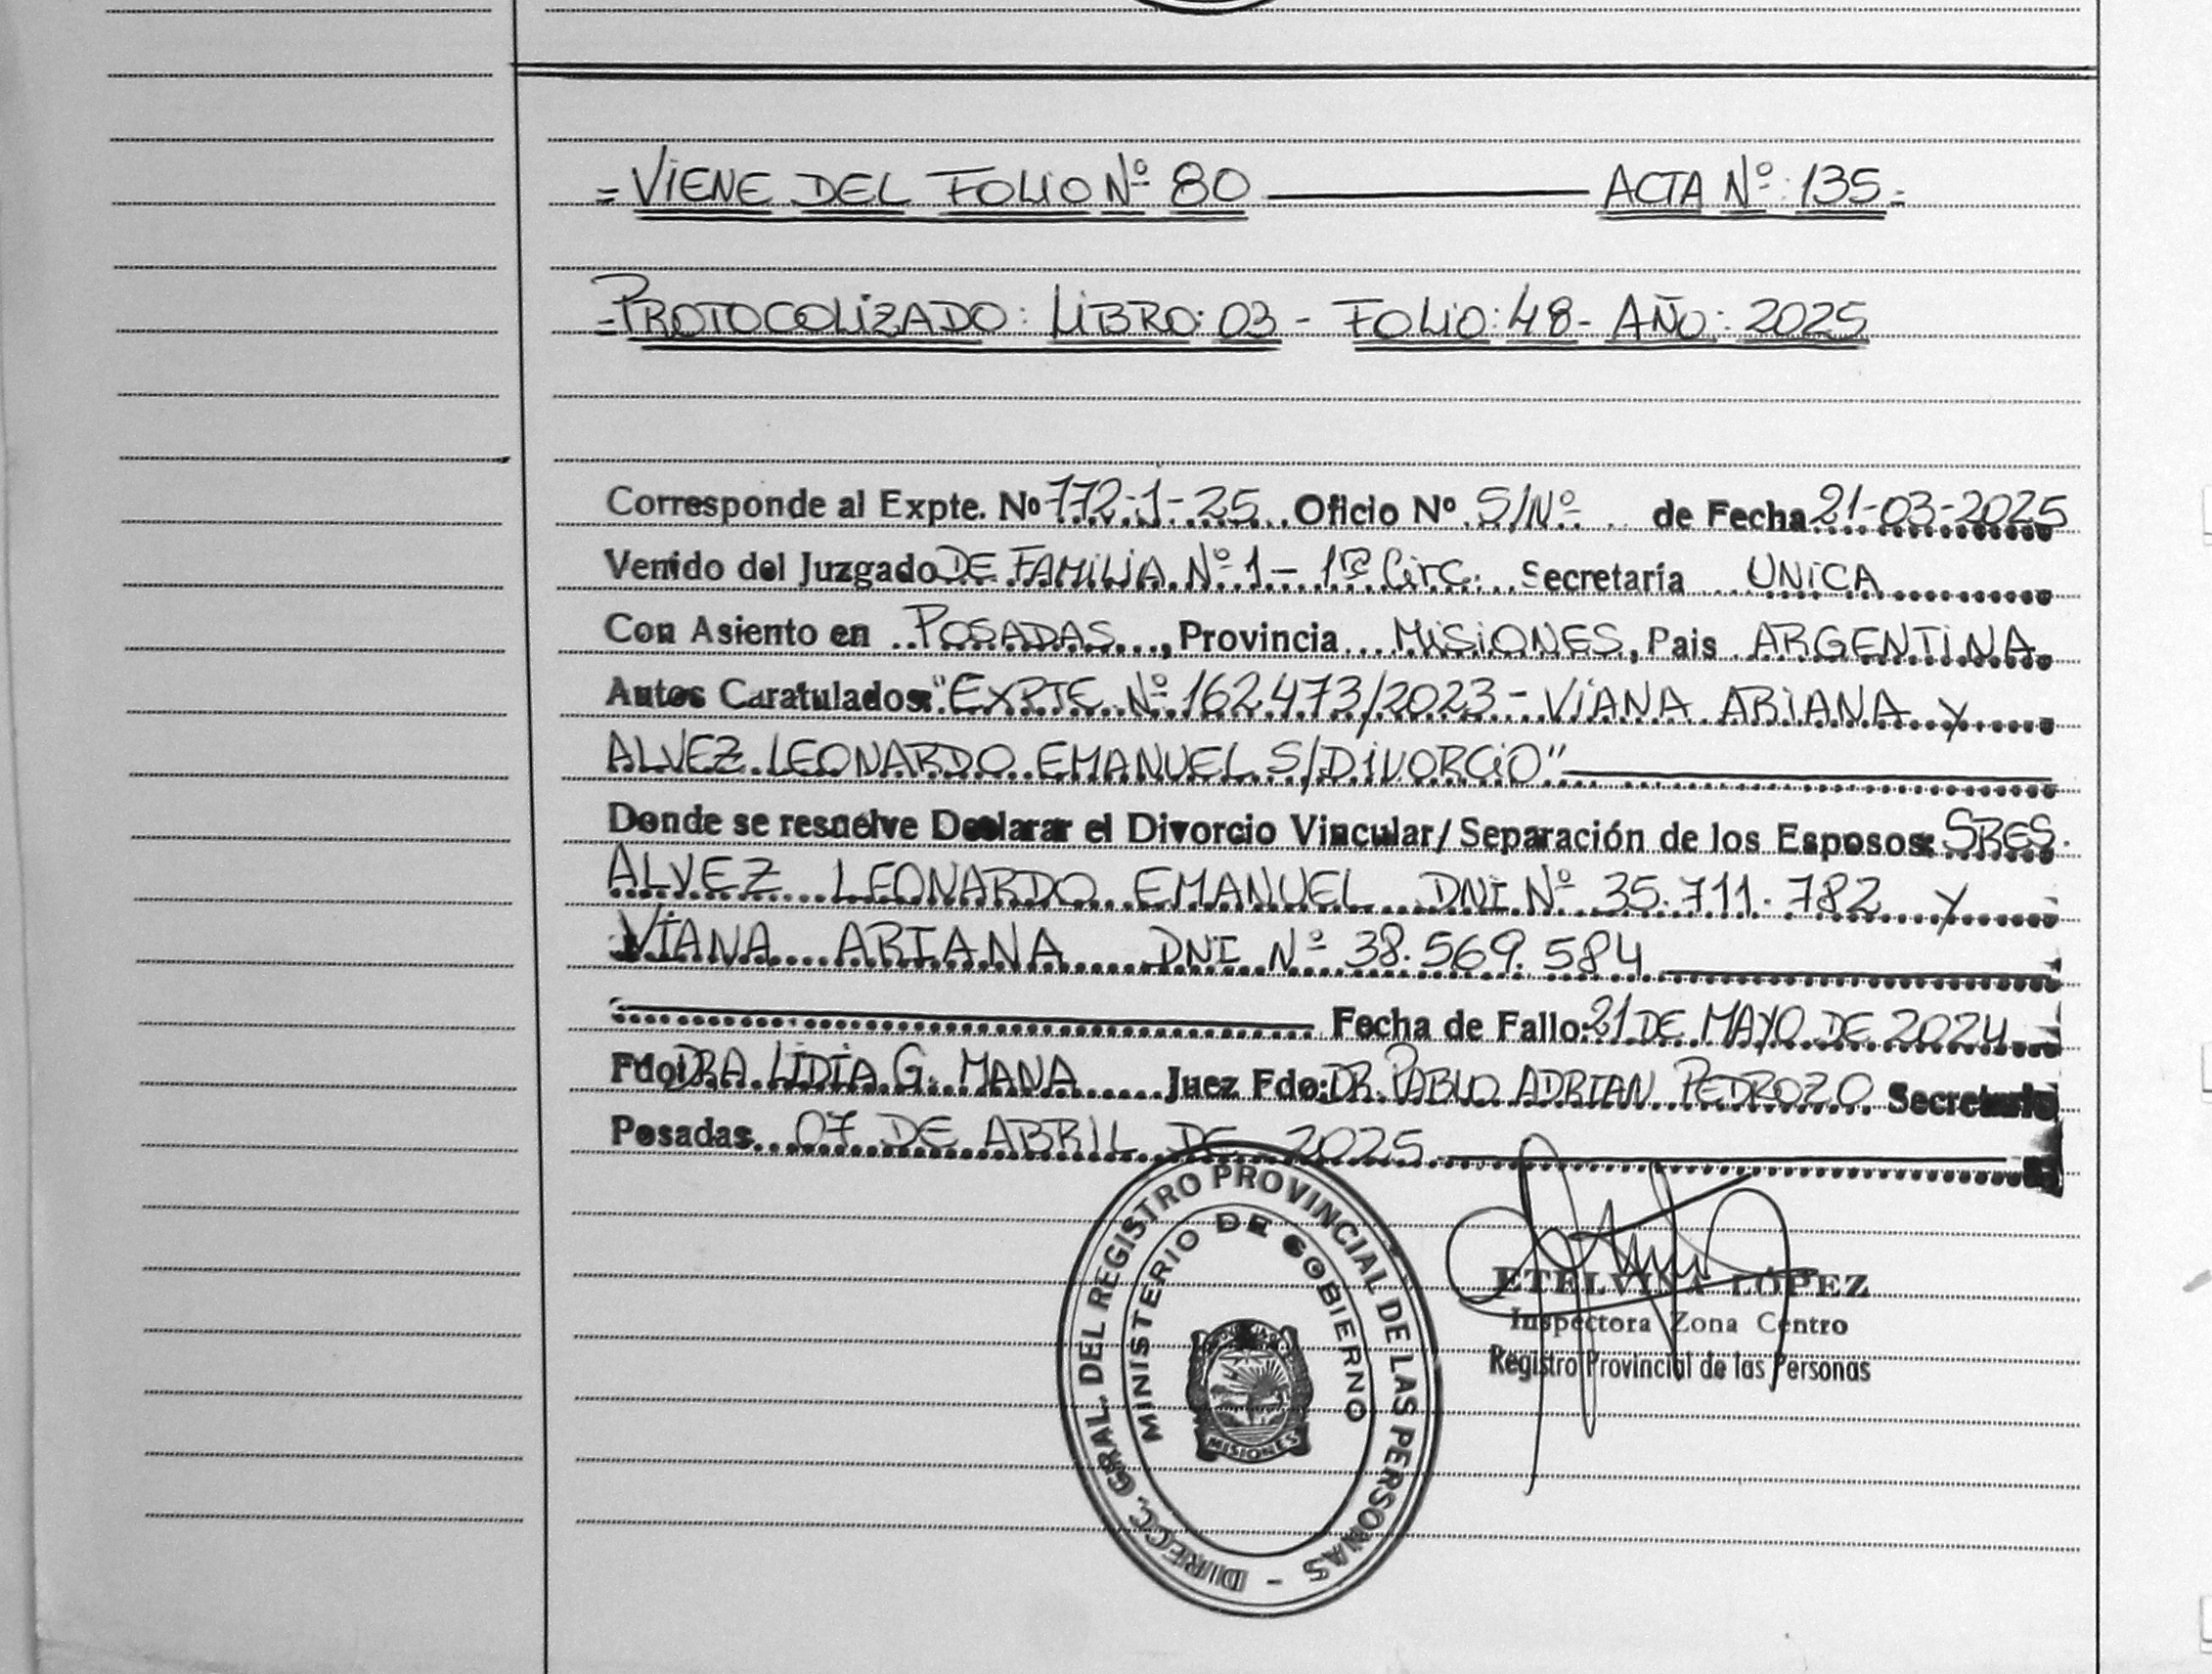 = VIENE DEL FOLIO Nº 80 ——— ACTA Nº: 135 =
= PROTOCOLIZADO: LIBRO: 03 - FOLIO: 48 - AÑO: 2025
Corresponde al Expte. Nº 772-J-25 Oficio Nº S/Nº de Fecha 21-03-2025
Venido del Juzgado DE FAMILIA Nº 1 - 1ra Circ. Secretaría UNICA
Con Asiento en POSADAS, Provincia MISIONES, Pais ARGENTINA
Autos Caratulados: "EXPTE Nº 162.473/2023 - VIANA ARIANA Y
ALVEZ LEONARDO EMANUEL S/DIVORCIO"
Donde se resuelve Declarar el Divorcio Vincular/Separación de los Esposos: SRES.
ALVEZ LEONARDO EMANUEL DNI Nº 35.711.782 Y
VIANA ARIANA DNI Nº 38.569.584
Fecha de Fallo: 21 DE MAYO DE 2024
Fdo: DRA LIDIA G. MANA Juez Fdo: DR. PABLO ADRIAN PEDROZO Secretario
Posadas 07 DE ABRIL DE 2025
DIRECC. GRAL. DEL REGISTRO PROVINCIAL DE LAS PERSONAS -
MINISTERIO DE GOBIERNO
MISIONES
ETELVINA LÓPEZ
Inspectora Zona Centro
Registro Provincial de las Personas